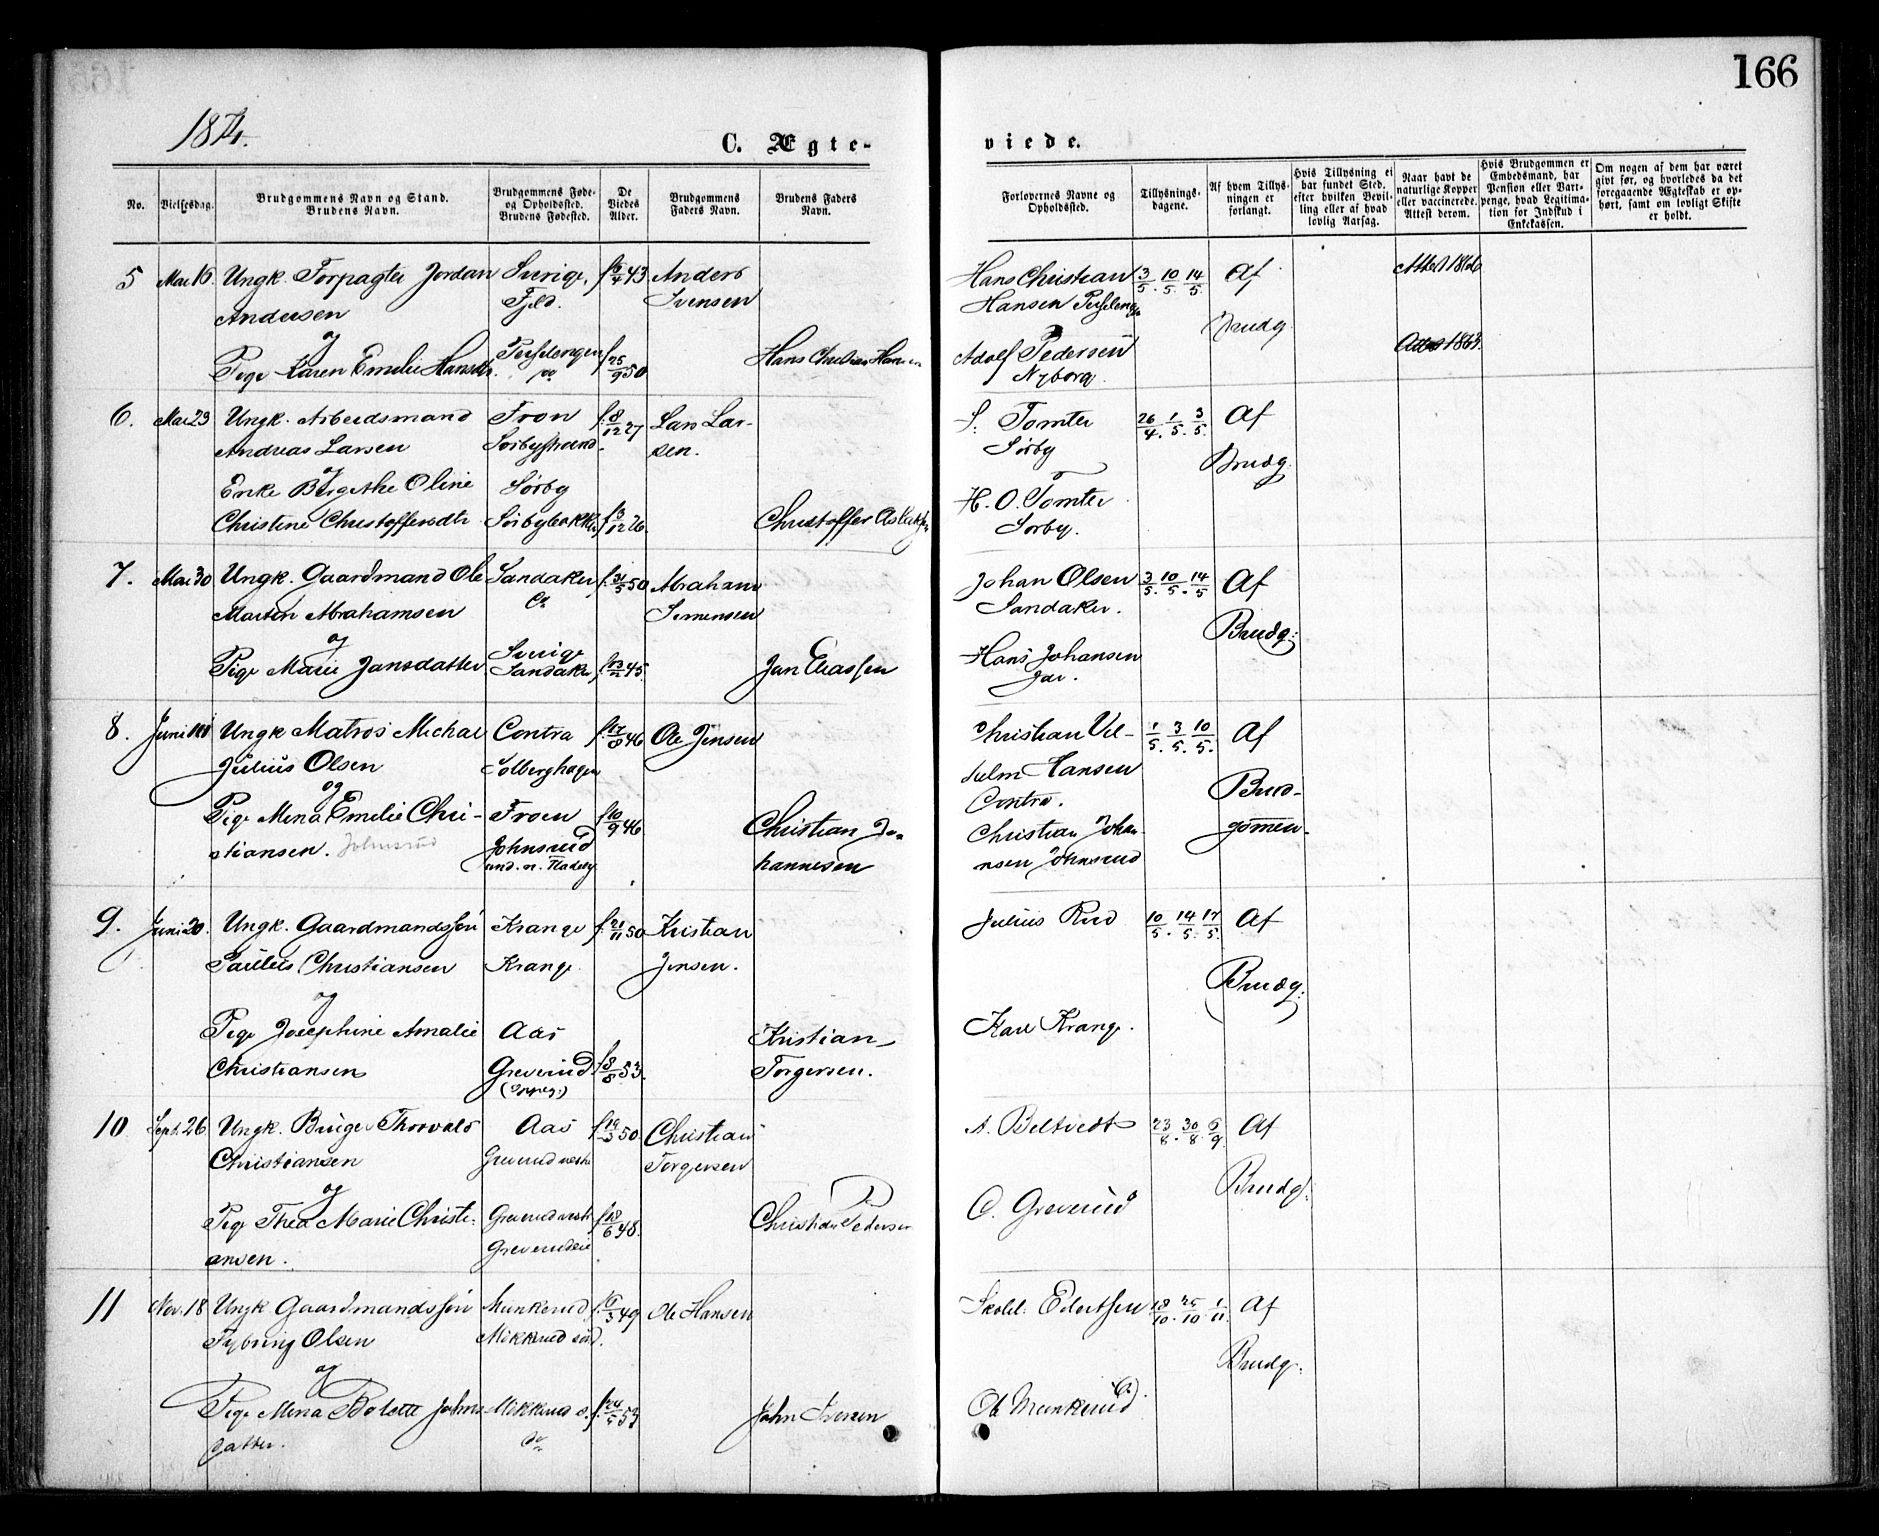 166
1874.
C. Ægte-
viede.
No.
Vielsesdag.
Brudgommens Navn og Stand.
Brudens Navn.
Brudgommens Føde-
og Opholdssted.
Brudens Fødested.
De
Viedes
Alder.
Brudgommens
Faders Navn.
Brudens Faders
Navn.
Forlovernes Navne og
Opholdssted.
Tillysnings-
dagene.
Af hvem Tillys-
ningen er
forlangt.
Hvis Tillysning ei
har fundet Sted,
efter hvilken Bevil-
ling eller af hvad
lovlig Aarsag.
Naar havt de
naturlige Kopper
eller vaccinerede.
Attest derom.
Hvis Brudgommen er
Embedsmand, har
Pension eller Vart-
penge, hvad Legitima-
tion for Indskud i
Enkekassen.
Om nogen af dem har været
gift før, og hvorledes da det
foregaaende Ægteskab er op-
hørt, samt om lovligt Skifte
er holdt.
5 Mai 16. Ungk. Forpagter Jordan Sverige, 43 Anders
Andersen Fjeld. Svensen
og
Pige Karen Emelie Hansdtr. f. 25/9 50 Hans Christian Hansen
Hans Christian 3/5. 10/5. 14/5. Af Attest 1866
Hansen
Brudg.
Adolf Pedersen Attest
Nyborg.
6. Mai 23 Ungk. Arbeidsmand Fron f. 8/12 27 Lars Lar-
Andreas Larsen sen.
og
Enke Birgethe Oline Sørby
Christine Christoffersdtr. f. 3/12 26. Christoffer
S. Tomter 26/4. 1/5. 3/5. Af
Sørby
Brudg.
H. O. Tomter
Sørby.
7. Mai 30 Ungk. Gaardmand Ole Sandaker f. 31/5 50 Abraham
Martin Abrahamsen Simensen
og
Pige Marie Jansdatter Sverige
Sandaker 45. Jan Eliassen
Johan Olsen 3/5. 10/5. 14/5 Af
Sandaker.
Brudg:
Hans Johansen
8. Juni Ungk Matros Michal Contra f. 17/8 46 Ole Jensen
Julius Olsen Solberghagen
og
Pige Mina Emelie Chri- Froen f. 10/9 46 Christian Jo-
stiansen. Johnsrud Johnsrud hannesen
Christian Vil- 1/5. 3/5. 10/5. Af
helm Hansen
Contra. Brud-
Christian Johan- gommen.
nsen Johnsrud
9. Juni 20. Ungk. Gaardmandssøn Krange f. 21/11 50 Kristian
Paulus Christiansen Krange. Jensen.
og
Pige Josephine Amalie Aas Kristian
Christiansen Greverud f. 8/8 53. Torgersen.
Julius Rud 10/5. 14/5. 17/5. Af
Brudg:
Karl Krange.
10 Sept. 26 Ungk. Birger Thorvald Aas 50. Christian
Christiansen Greverud vestre Torgersen
og
Pige Thea Marie Christi- Greverud vestre f. 18/6 48. Christian Pedersen
ansen.
A. Beltvedt 23/8. 30/8. 6/9. Af
Brudg:
C. Greverud
11 Nov. 18 Ungk Gaardmandssøn Munkerud f. 6/3 49 Ole Hansen
Fybring Olsen Mikkerud sød.
og
Pige Mina Bolette Johns- Mikkerud s. John Iversen
datter. do
Skolel. Edvartsen 18/10. 25/10. 1/11. Af
Brudg.
Ole Munkerud